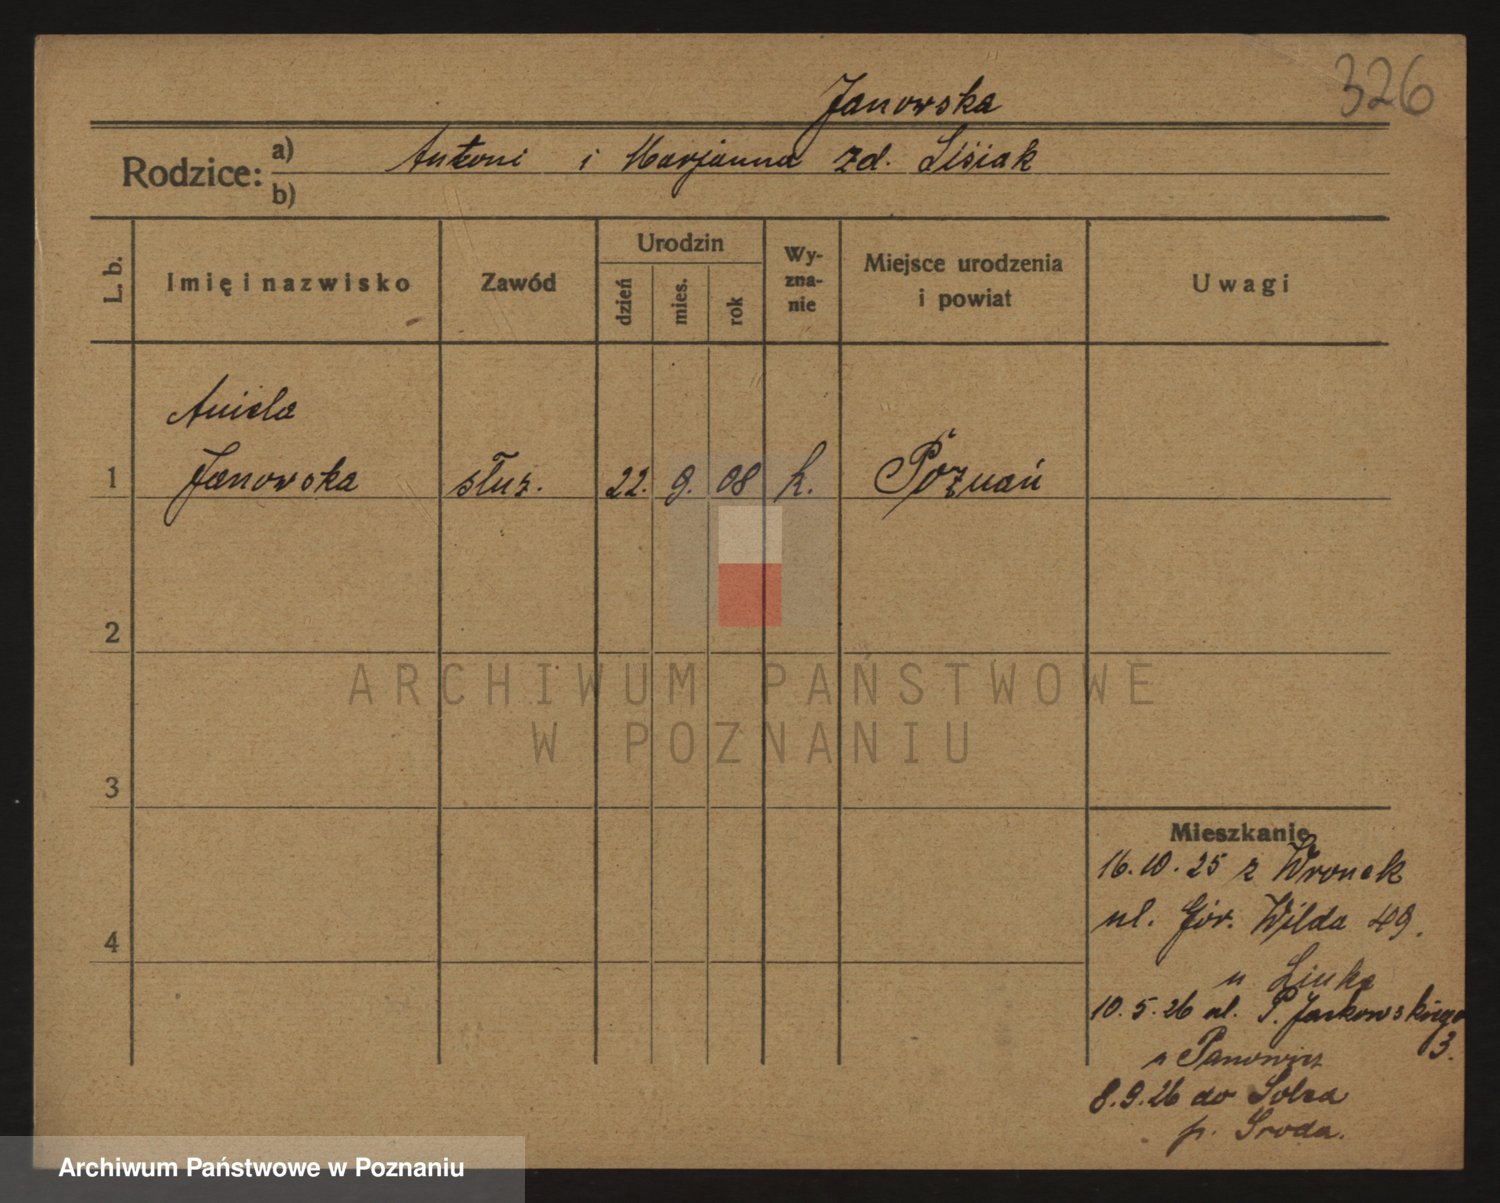 326
Janowska
Rodzice: a) Antoni i Marjanna zd. Lisiak
b)
L. b.
Imię i nazwisko
Zawód
Urodzin
dzień
mies.
rok
Wy-
zna-
nie
Miejsce urodzenia
i powiat
Uwagi
Aniela
1 Janowska służ. 22. 9. 08 k. Poznań
2
3
4
Mieszkanie
16.10.25 z Wronek
ul. Gór. Wilda 49.
u
10.5.26 ul. P. Jackowskiego
3.
u
8.9.26 do
p. Sroda.
ARCHIWUM PAŃSTWOWE
W POZNANIU
Archiwum Państwowe w Poznaniu